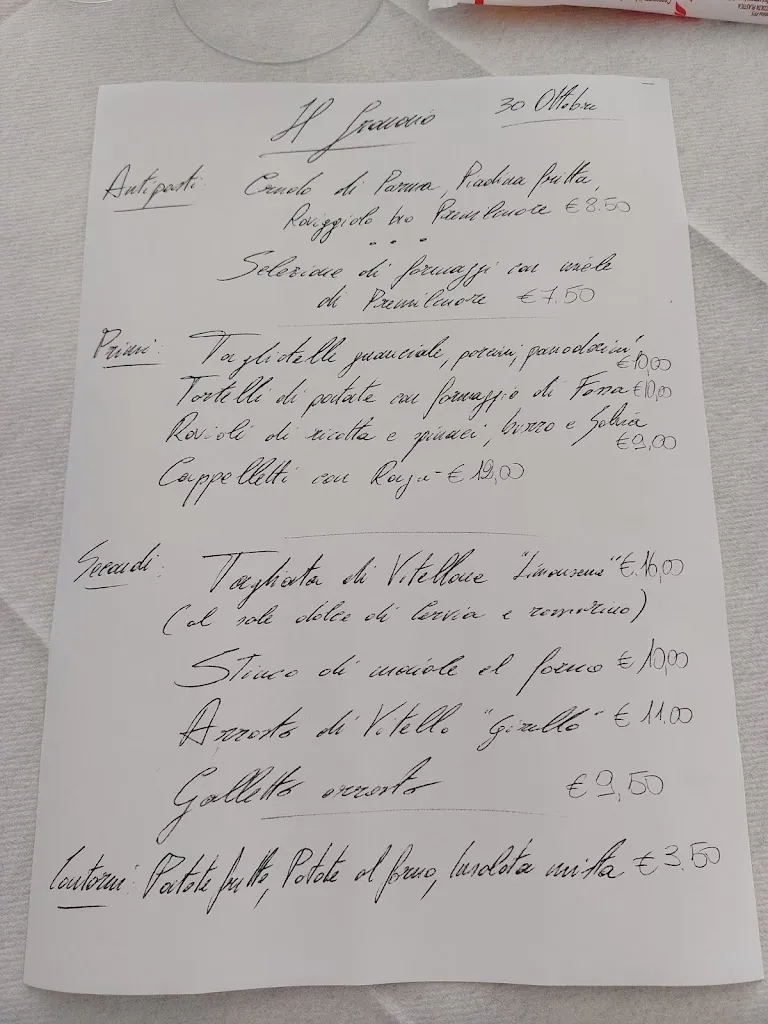 Il Granaio 30 Ottobre
Antipasti: Crudo di Parma, Piadina fritta,
Raviggiolo bio Premilcuore € 8.50
Selezione di formaggi con miele
di Premilcuore € 7.50
Primi: Tagliatelle guanciale, porcini, pomodorini €10,00
Tortelli di patate con formaggio di Fossa €10,00
Ravioli di ricotta e spinaci, burro e Salvia €9,00
Cappelletti con Ragù € 12,00
Secondi: Tagliata di Vitellone "Limousine" €.16,00
(al sale dolce di Cervia e rosmarino)
Stinco di maiale al forno € 10,00
Arrosto di Vitello "girello" € 11.00
Galletto arrosto € 9,50
Contorni: Patate fritte, Patate al forno, Insalata mista € 3.50